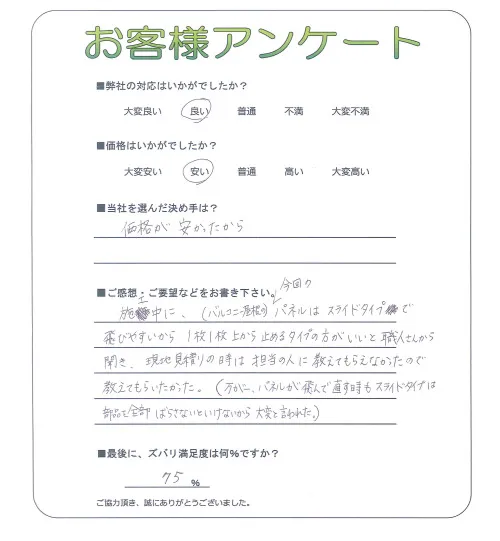 お客様アンケート
■弊社の対応はいかがでしたか？
大変良い 良い 普通 不満 大変不満
■価格はいかがでしたか？
大変安い 安い 普通 高い 大変高い
■当社を選んだ決め手は？
価格が安かったから
■ご感想・ご要望などをお書き下さい。
今回の
施工中に、(バルコニー屋根の)パネルはスライドタイプで
飛びやすいから1枚1枚上から止めるタイプの方がいいと職人さんから
聞き、現地見積りの時は担当の人に教えてもらえなかったので
教えてもらいたかった。(万が一、パネルが飛んで直す時もスライドタイプは
部品を全部ばらさないといけないから大変と言われた。)
■最後に、ズバリ満足度は何%ですか？
75 %
ご協力頂き、誠にありがとうございました。